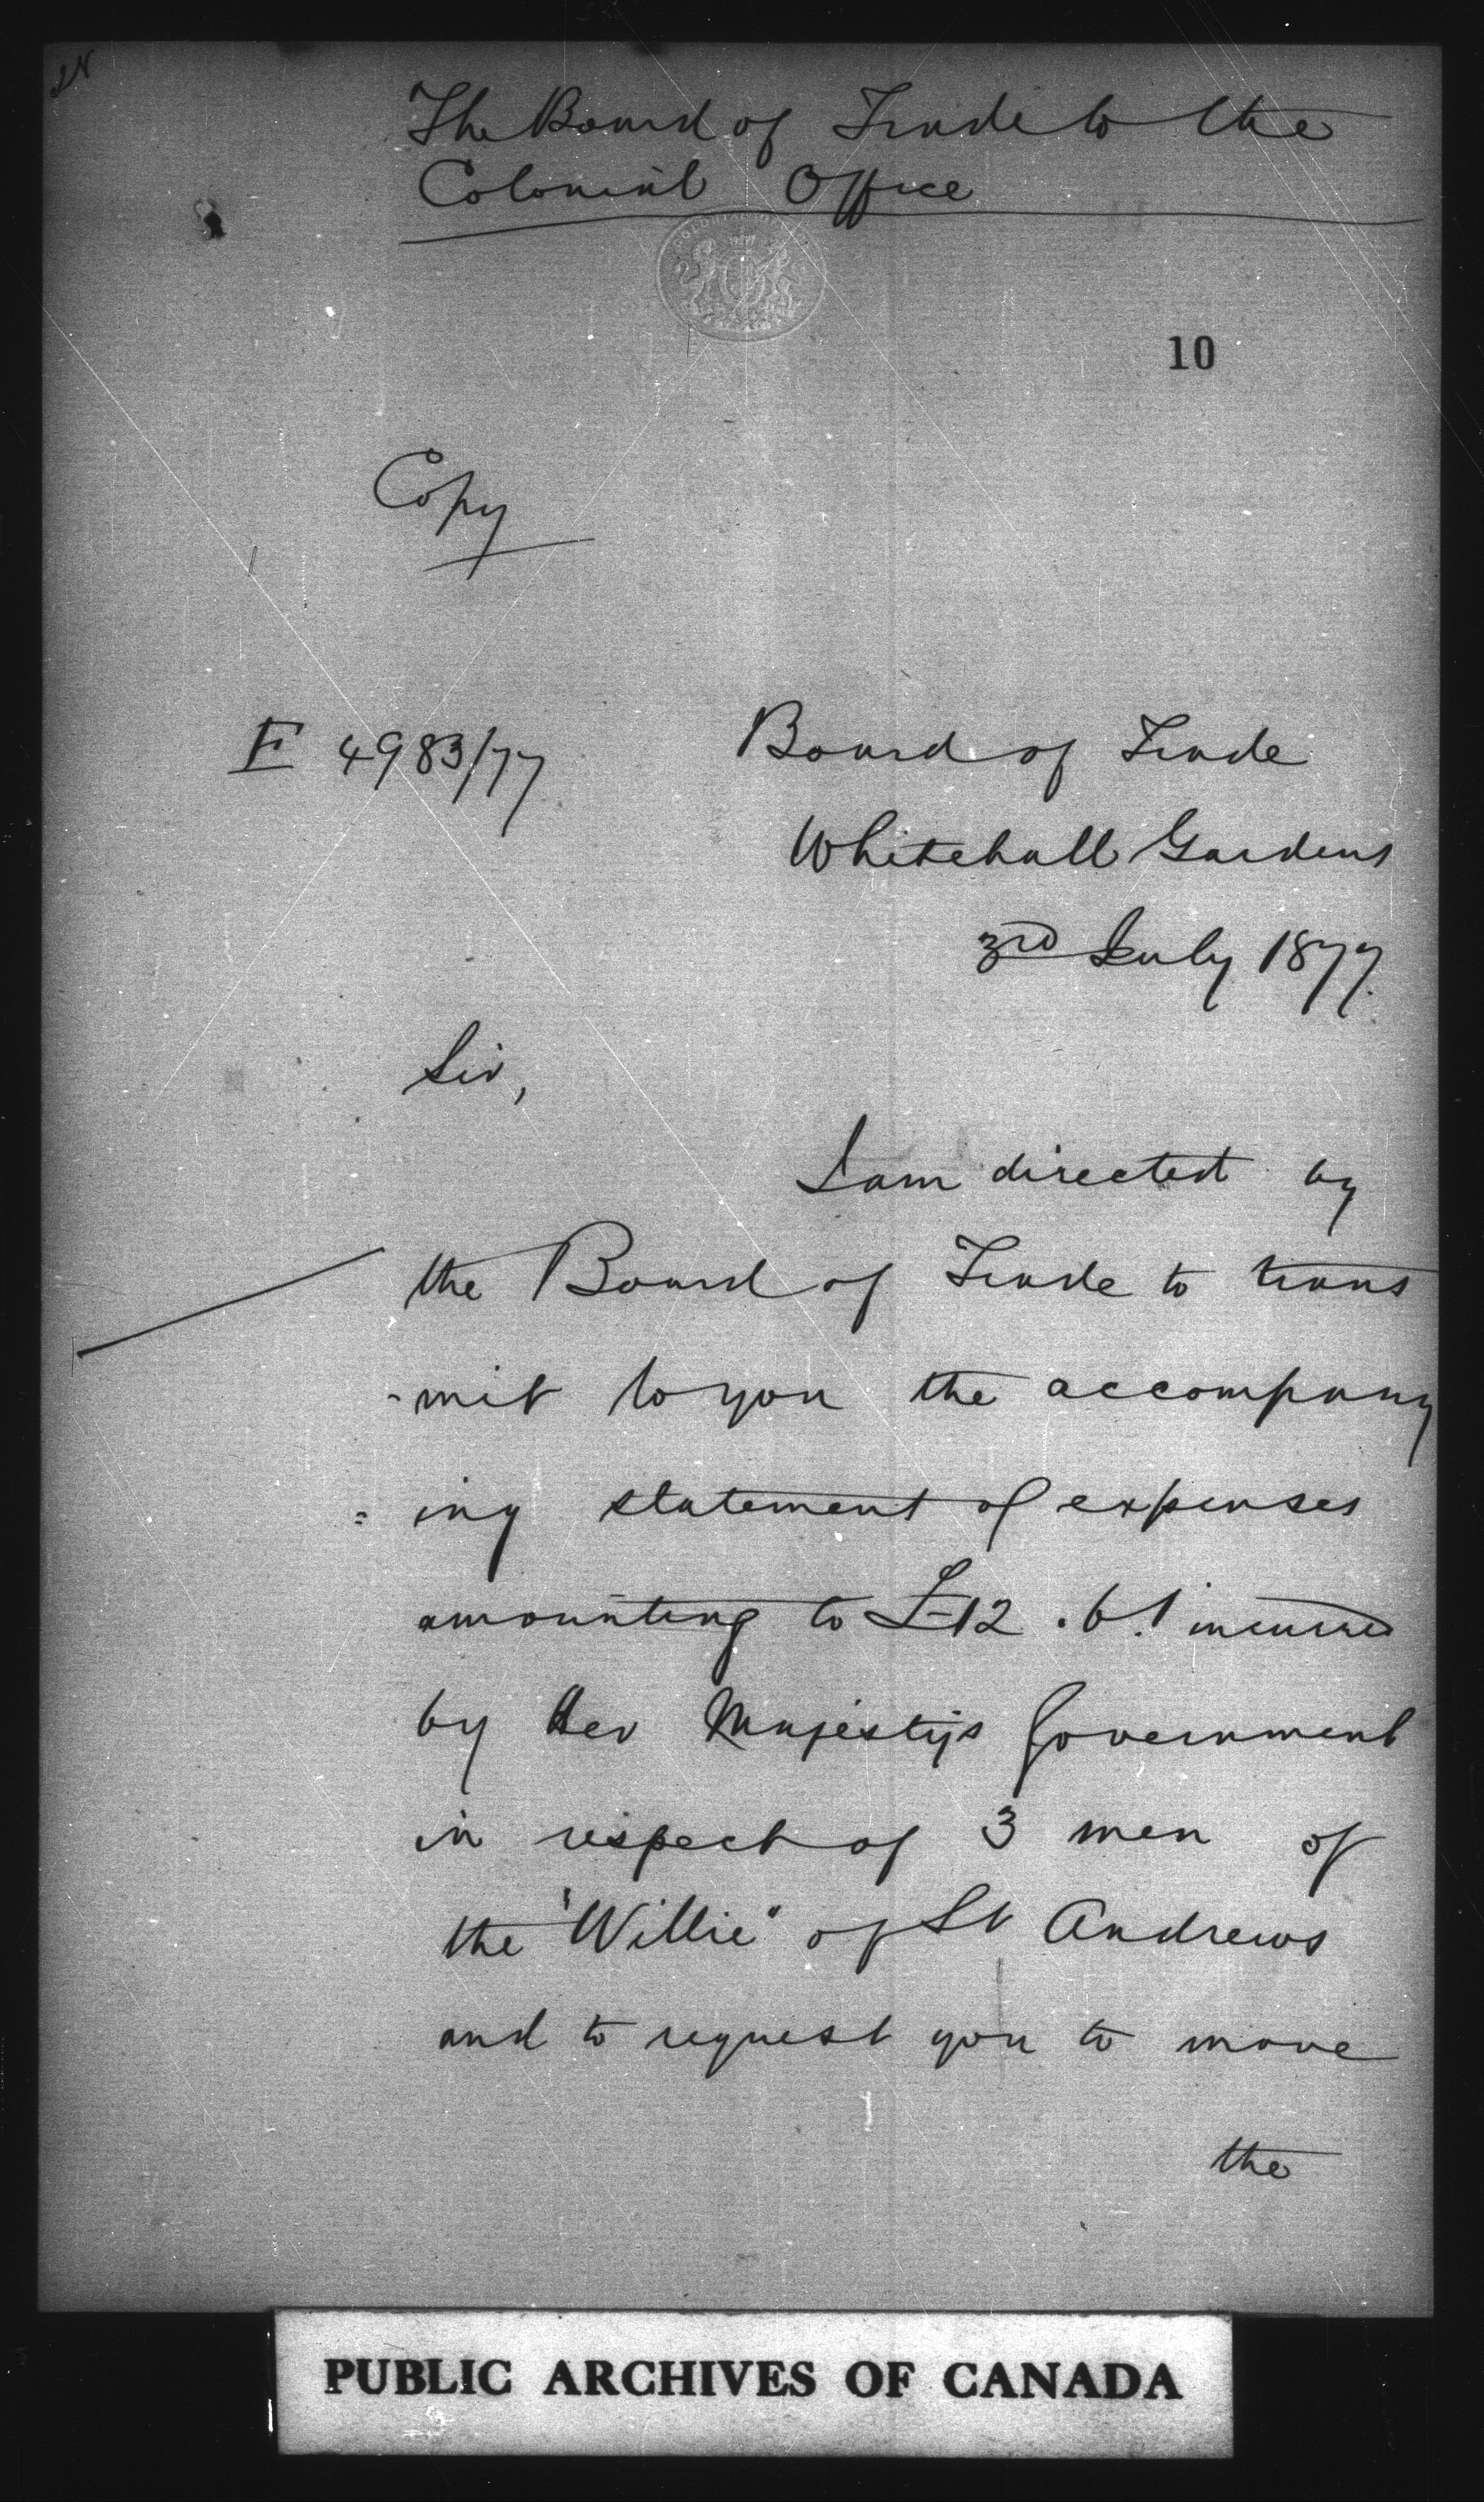 The Board of Trade to the
Colonial Office
10
Copy
F 4983/77
Board of Trade
Whitehall Gardens
3rd July 1877.
Sir,
I am directed by
the Board of Trade to trans
-mit to you the accompany
=ing statement of expenses
amounting to £-12.6.1 incurred
by Her Majesty's Government
in respect of 3 men of
the "Willie" of St Andrews
and to request you to move
the
PUBLIC ARCHIVES OF CANADA